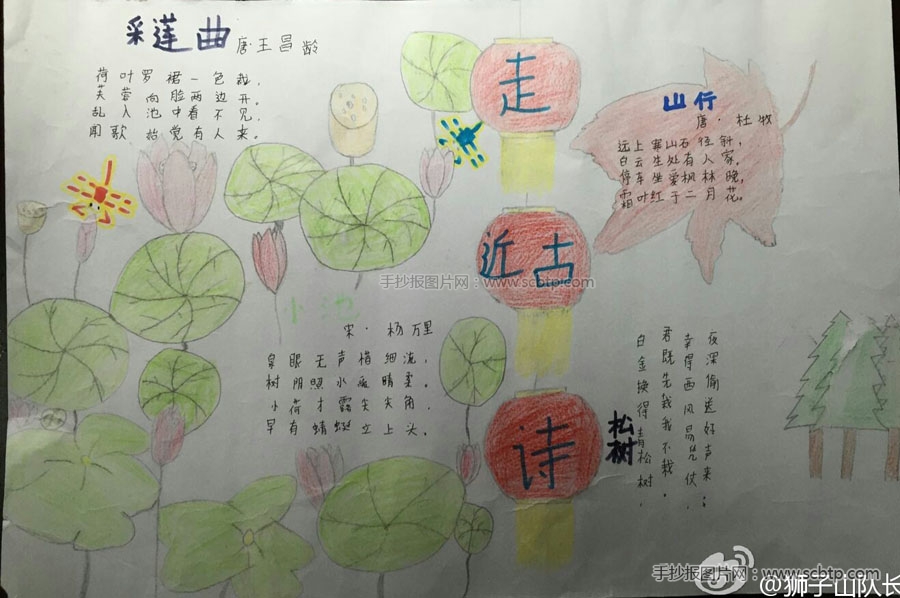 采莲曲
唐·王昌龄
荷叶罗裙一色裁,
芙蓉向脸两边开。
乱入池中看不见,
闻歌始觉有人来。
走
近古
诗
山行
唐·杜牧
远上寒山石径斜,
白云生处有人家。
停车坐爱枫林晚,
霜叶红于二月花。
手抄报图片网:www.scbtp.com
小池
宋·杨万里
泉眼无声惜细流,
树阴照水爱晴柔。
小荷才露尖尖角,
早有蜻蜓立上头。
松树
白金换得青松树,
君既先栽我不栽。
幸得西风易凭仗,
夜深偷送好声来。
手抄报图片网:www.scbtp.com
@狮子山队长